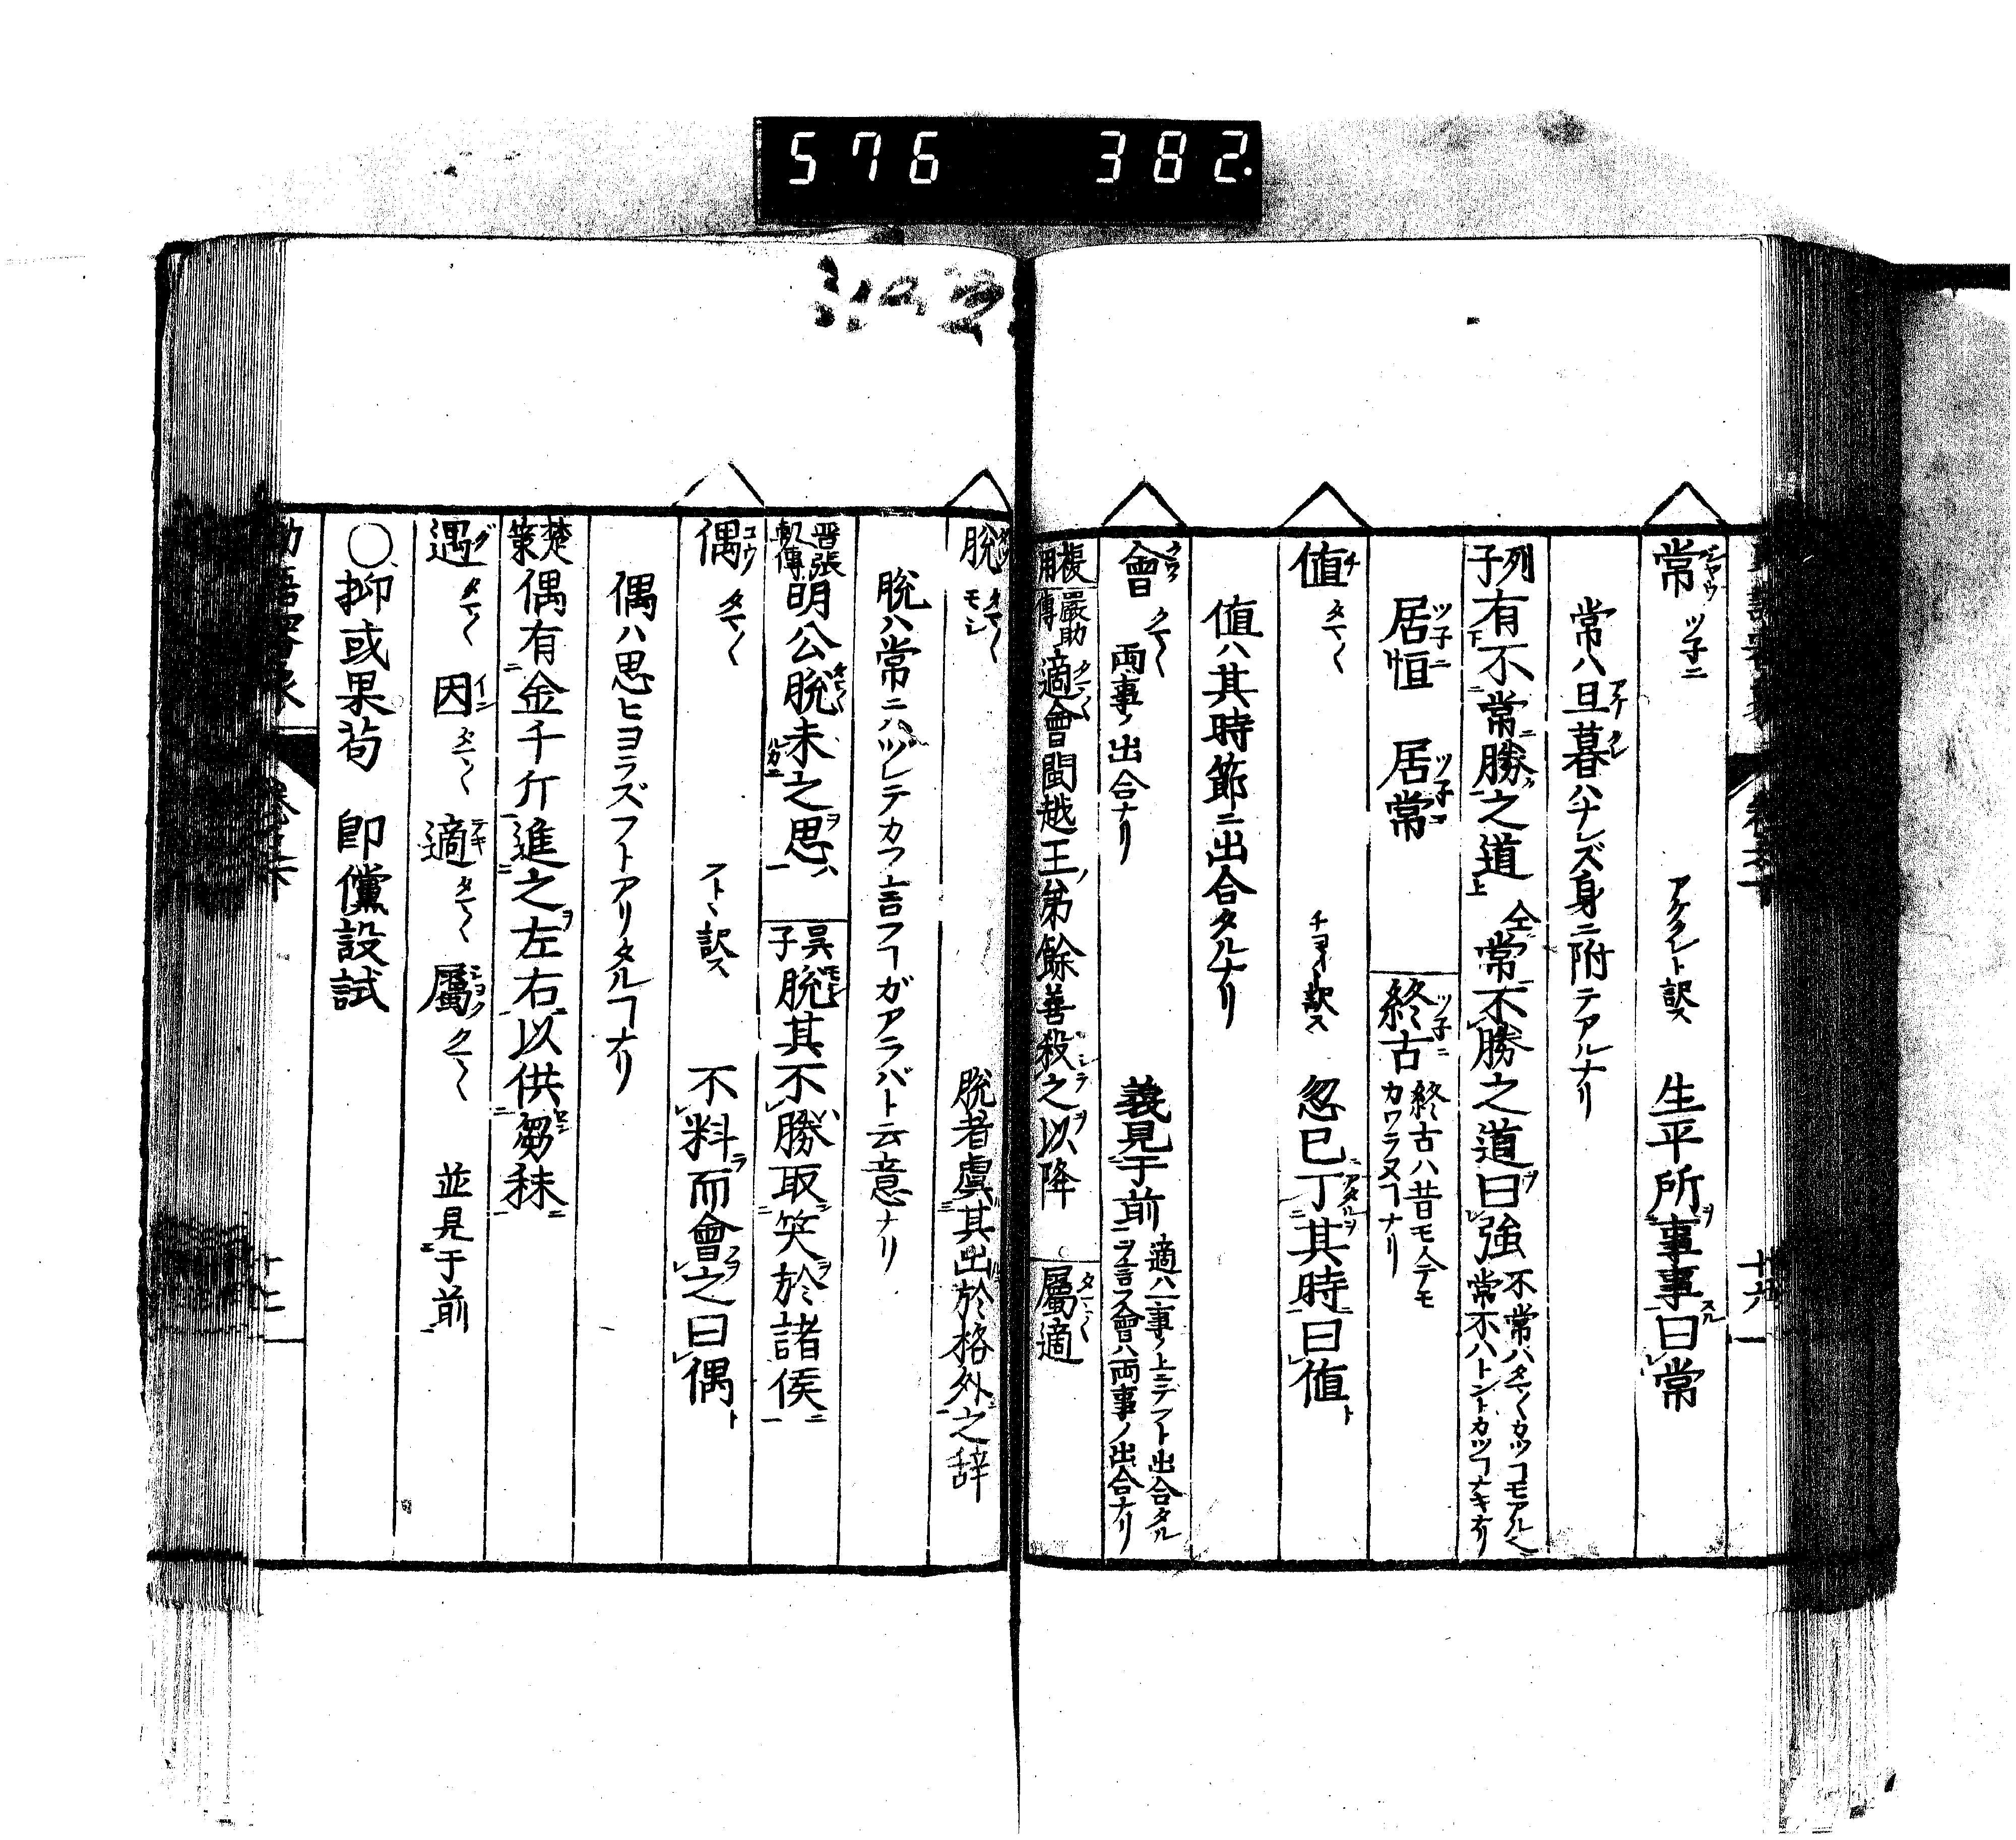 576 382
常 ツ子ニ アケクレト訳ス 生平所事事曰常
常ハ旦暮ハナレズ身ニ附テアルナリ
列子 有不常勝之道 仝 常不勝之道曰強 不常ハタマ〱カツコモアル 常不ハトントカツコナキナリ
居恒 居常 終古 終古ハ昔モ今テモカワラヌコナリ
値 タマ〱 訳ス 忽已丁其時曰値
値ハ其時節ニ出合タルナリ
會 タマ〱 両事ノ出合ナリ 義見于前 適ハ一事ノ上ニテフト出合タルヲ言ス會ハ両事ノ出合ナリ
複用 嚴助傳 適會閩越王弟餘善殺之以降 屬適
脱 タマ〱 モシ 脱者虞其出於格外之辞
脱ハ常ニハヅレテカフ言フコガアラバト云意ナリ
晋張軌傳 明公脱未之思 呉子 脱其不勝取笑於諸侯
偶 タマ〱 フト訳ス 不料而會之曰偶
偶ハ思ヒヨラズフトアリタルコナリ
楚策 偶有金千斤進之左右以供芻秣
遇 タマ〱 因 タマ〱 適 タマ〱 屬 タマ〱 並見于前
〇抑或果茍 即儻設試